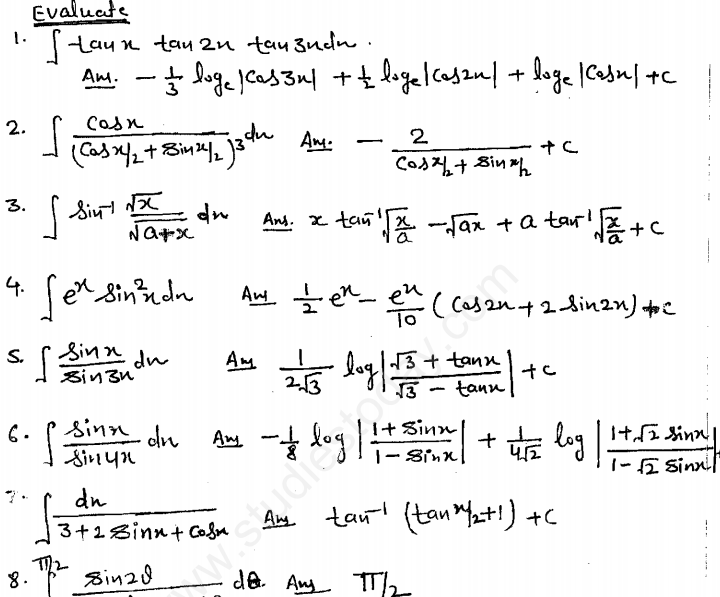 Evaluate
1. ∫ tan x tan 2x tan 3x dx.
Ans. − 1/3 logₑ |Cos3x| + 1/2 logₑ |Cos2x| + logₑ |Cosx| + c
2. ∫ Cosx / (Cos x/2 + Sin x/2)³ dx Ans. − 2 / (Cos x/2 + Sin x/2) + c
3. ∫ Sin⁻¹ √x / √a+x dx Ans. x tan⁻¹ √(x/a) − √ax + a tan⁻¹ √(x/a) + c
4. ∫ eˣ Sin²x dx Ans 1/2 eˣ − eˣ/10 (Cos2x + 2 Sin2x) + c
5. ∫ Sinx / Sin3x dx Ans 1/2√3 log | √3 + tanx / √3 − tanx | + c
6. ∫ Sinx / Sin4x dx Ans −1/8 log | 1+Sinx / 1−Sinx | + 1/4√2 log | 1+√2 Sinx / 1−√2 Sinx | +
7. ∫ dx / 3+2 Sinx + Cosx Ans tan⁻¹ (tan x/2 + 1) + c
8. ∫ π/2 Sin2θ dθ. Ans π/2
www.studiestoday.com